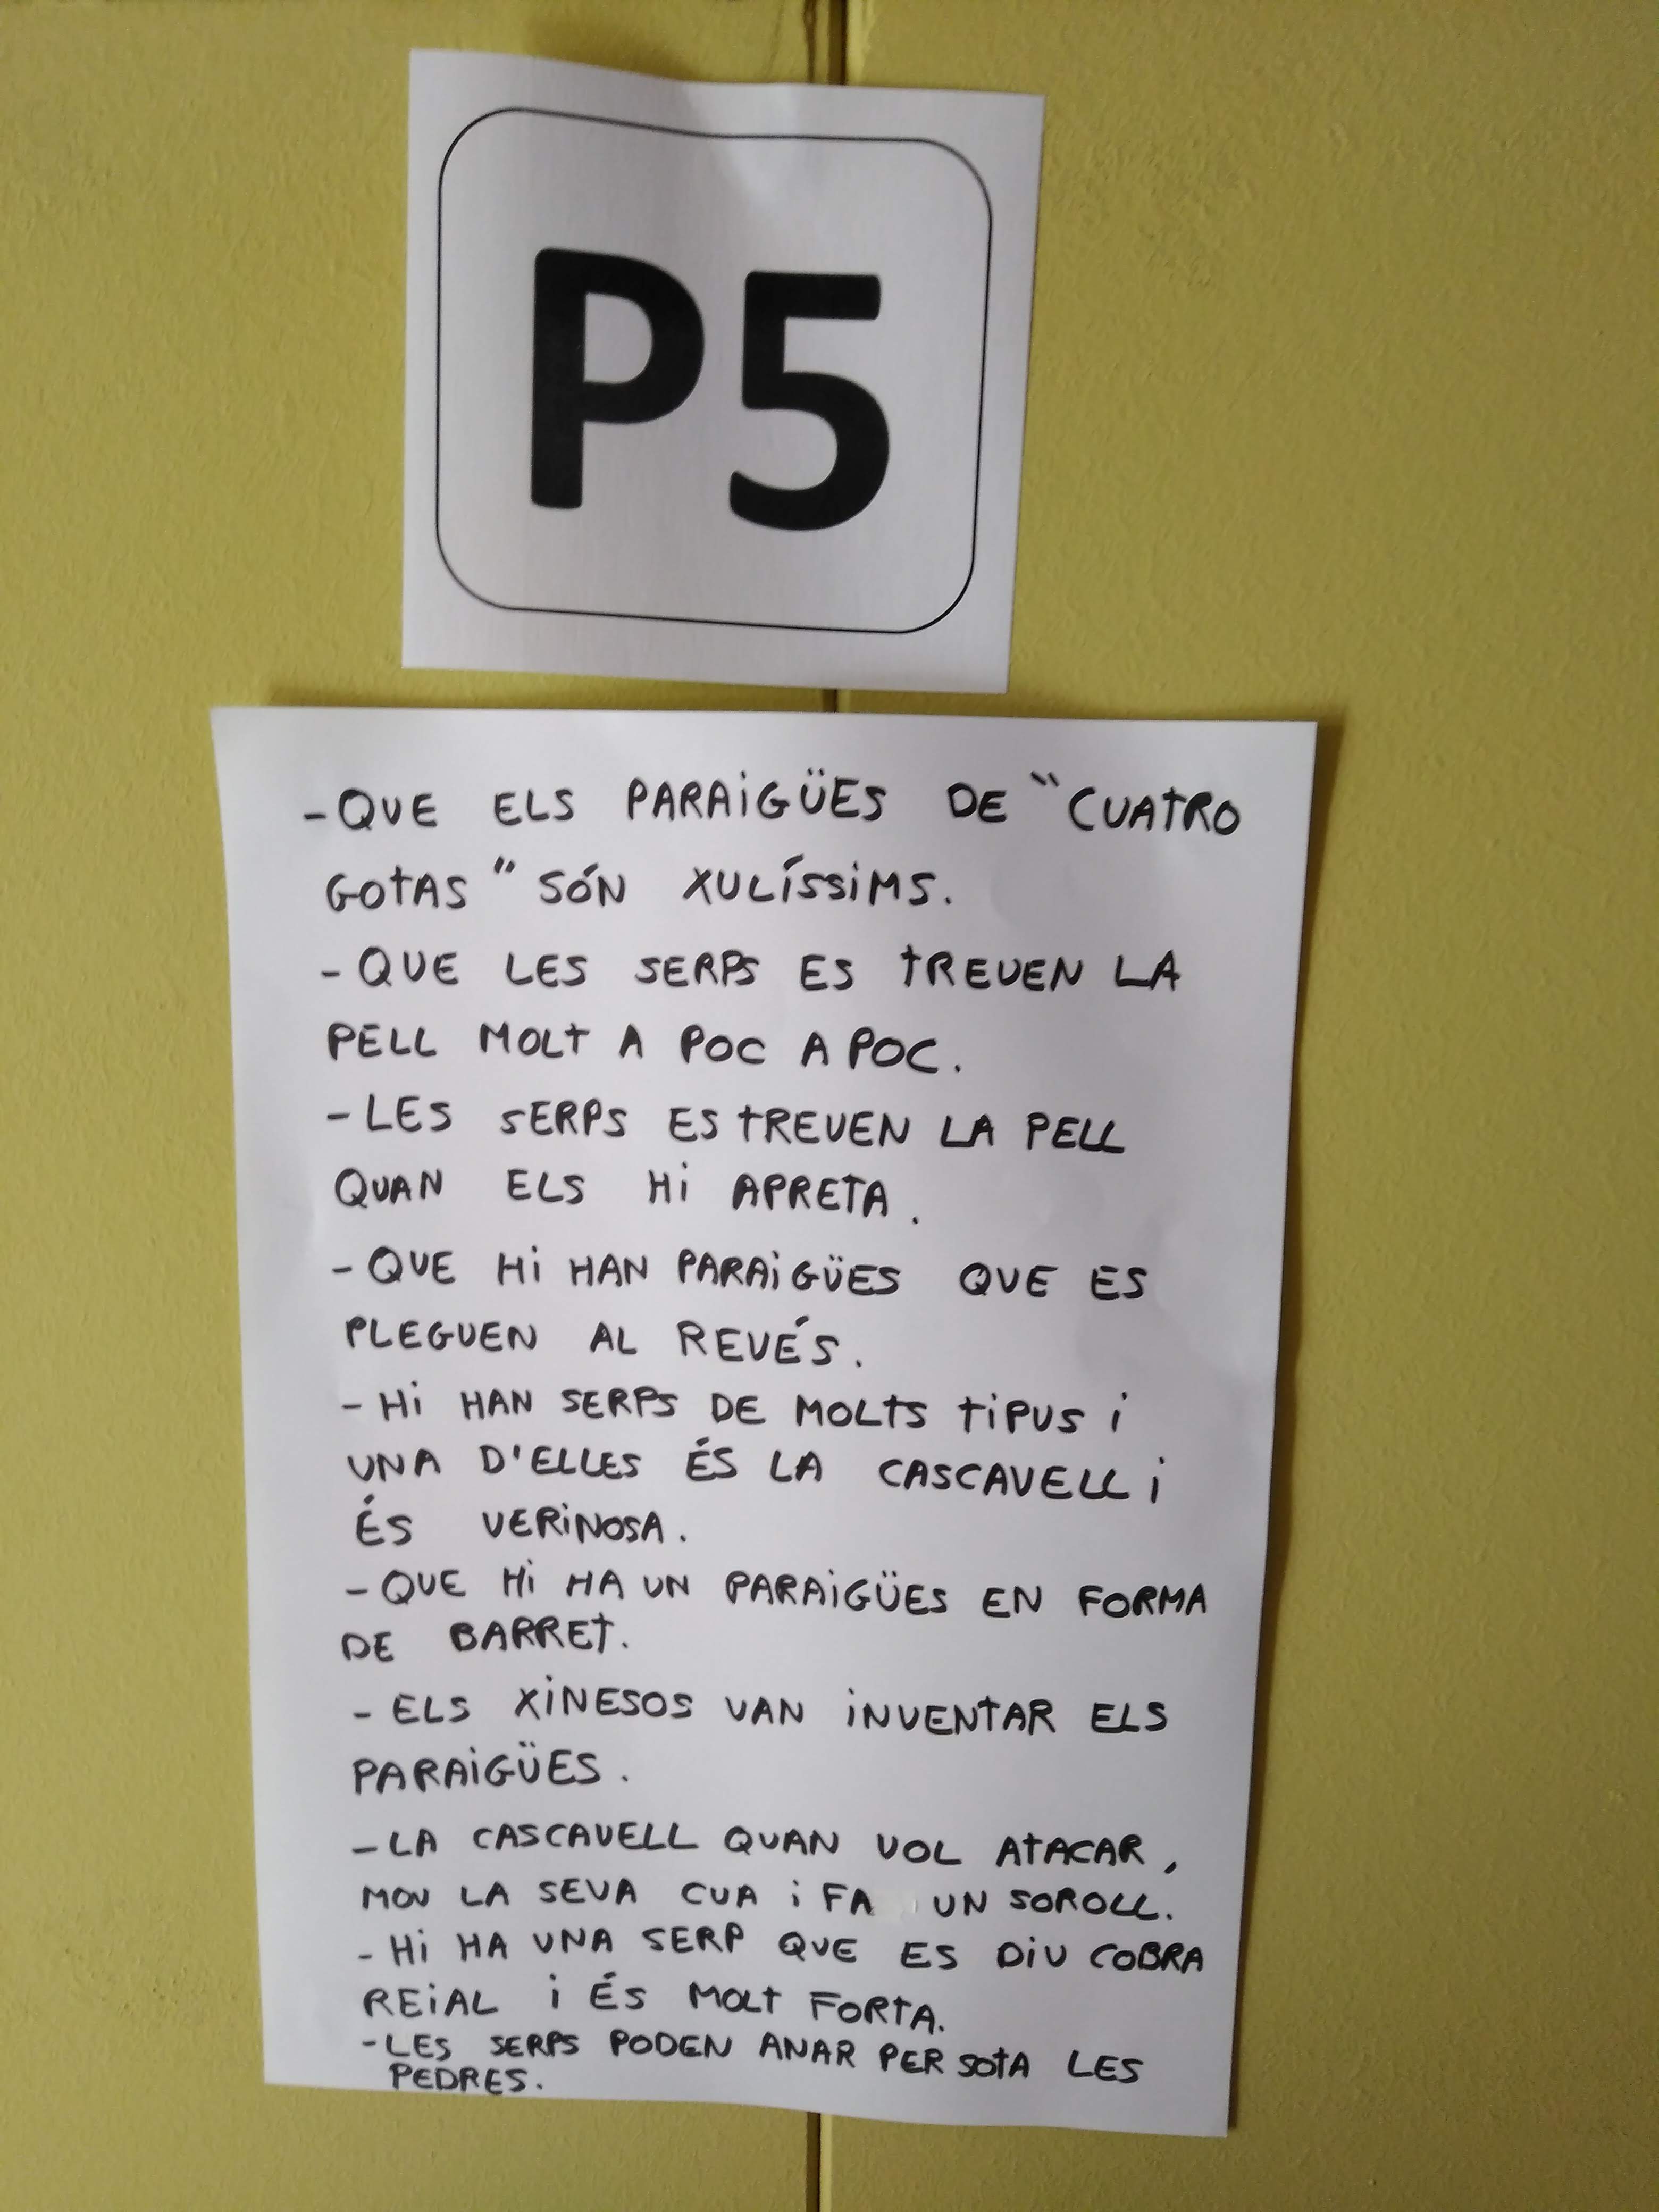 P5
- QUE ELS PARAiGÜES DE "CUATRO
GOTAS" SÓN XULÍSSiMS.
- QUE LES SERPS ES TREUEN LA
PELL MOLT A POC A POC.
- LES SERPS ES TREUEN LA PELL
QUAN ELS Hi APRETA.
- QUE Hi HAN PARAiGÜES QUE ES
PLEGUEN AL REVÉS.
- Hi HAN SERPS DE MOLTS TiPUS i
UNA D'ELLES ÉS LA CASCAVELL i
ÉS VERiNOSA.
- QUE Hi HA UN PARAiGÜES EN FORMA
DE BARRET.
- ELS XiNESOS VAN iNVENTAR ELS
PARAiGÜES.
- LA CASCAVELL QUAN VOL ATACAR,
MOU LA SEVA CUA i FA UN SOROLL.
- Hi HA UNA SERP QUE ES DiU COBRA
REiAL i ÉS MOLT FORTA.
- LES SERPS PODEN ANAR PER SOTA LES
PEDRES.